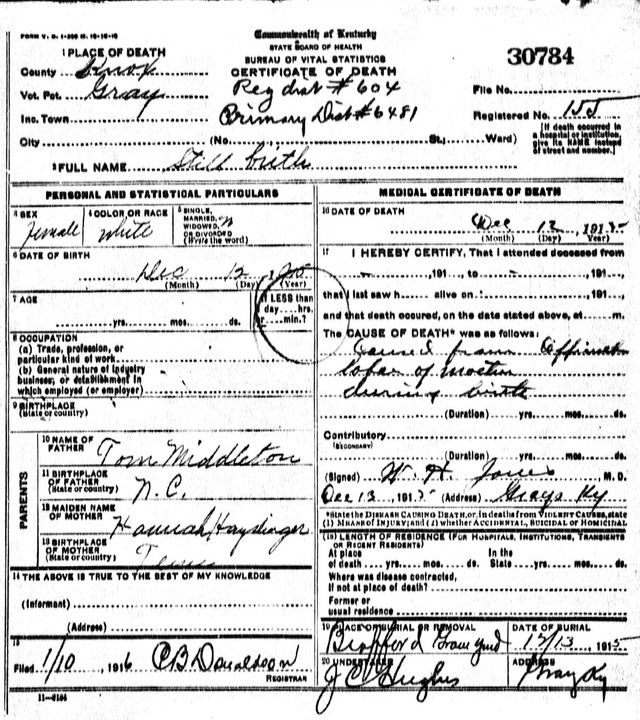 Commonwealth of Kentucky
FORM V. S. 1-
STATE BOARD OF HEALTH
BUREAU OF VITAL STATISTICS
CERTIFICATE OF DEATH
30784
1 PLACE OF DEATH
County Knox
Vot. Pct. Gray
Inc. Town
City (No. St.; Ward)
Reg dist # 604
Primary Dist # 6481
File No.
Registered No. 155
(If death occurred in a hospital or institution, give its NAME instead of street and number.)
2 FULL NAME Still birth
PERSONAL AND STATISTICAL PARTICULARS
3 SEX
female
4 COLOR OR RACE
white
5 SINGLE,
MARRIED,
WIDOWED,
OR DIVORCED
(Write the word)
6 DATE OF BIRTH
Dec 12
(Month) (Day) (Year)
7 AGE
yrs. mos. ds.
If LESS than
day hrs.
min.?
8 OCCUPATION
(a) Trade, profession, or
particular kind of work
(b) General nature of industry
business; or establishment in
which employed (or employer)
9 BIRTHPLACE
(State or country)
PARENTS
10 NAME OF
FATHER Tom Middleton
11 BIRTHPLACE
OF FATHER
(State or country) N.C.
12 MAIDEN NAME
OF MOTHER Hannah
13 BIRTHPLACE
OF MOTHER
(State or country) Tenn
14 THE ABOVE IS TRUE TO THE BEST OF MY KNOWLEDGE
(Informant)
(Address)
15
Filed 1/10 1916 C B Donaldson
REGISTRAR
11-3184
MEDICAL CERTIFICATE OF DEATH
16 DATE OF DEATH
Dec 12, 1915
(Month) (Day) Year
17 I HEREBY CERTIFY, That I attended deceased from
, 191 , to , 191 ,
that I last saw h alive on , 191 ,
and that death occured, on the date stated above, at m.
The CAUSE OF DEATH* was as follows:
Caused from
of
during birth
(Duration) yrs. mos. ds.
Contributory
(SECONDARY)
(Duration) yrs. mos. ds.
(Signed) W. H. Jones M. D.
Dec 13, 1915 (Address) Grays Ky
*State the DISEASE CAUSING DEATH, or, in deaths from VIOLENT CAUSES, state
(1) MEANS OF INJURY; and (2) whether ACCIDENTAL, SUICIDAL or HOMICIDAL
(18) LENGTH OF RESIDENCE (FOR HOSPITALS, INSTITUTIONS, TRANSIENTS
OR RECENT RESIDENTS)
At place In the
of death yrs. mos. ds. State yrs. mos. ds.
Where was disease contracted,
If not at place of death?
Former or
usual residence
19 PLACE OF BURIAL OR REMOVAL
DATE OF BURIAL
12/13, 1915
20 UNDERTAKER
J C Hughes
ADDRESS
Gray Ky